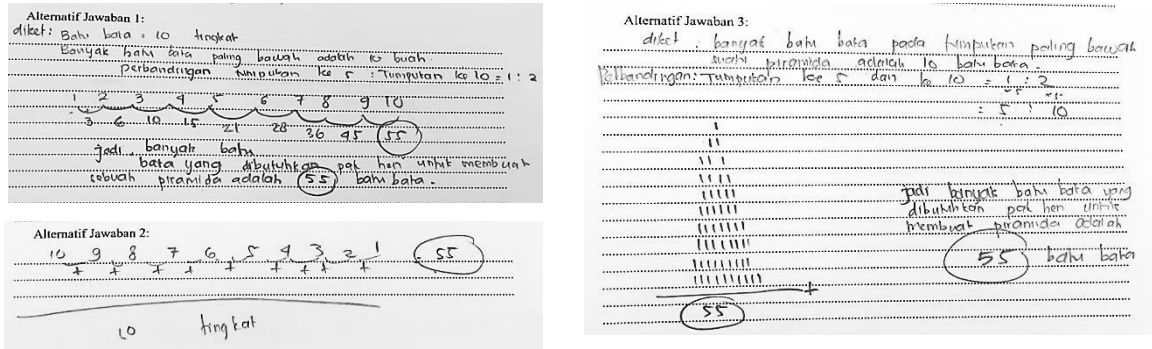 Alternatif Jawaban 1:
diket: Batu bata = 10 tingkat
Banyak batu bata paling bawah adalah 10 buah.
perbandingan tumpukan ke 5 : Tumpukan ke 10 = 1 : 2
1 2 3 4 5 6 7 8 9 10
3 6 10 15 21 28 36 45 55
jadi banyak batu
bata yang dibutuhkan pak heri untuk membuat
sebuah piramida adalah 55 batu bata.
Alternatif Jawaban 2:
10 + 9 + 8 + 7 + 6 + 5 + 4 + 3 + 2 + 1 55
10 tingkat
Alternatif Jawaban 3:
diket : banyak batu bata pada tumpukan paling bawah
suatu piramida adalah 10 batu bata.
Perbandingan: Tumpukan ke 5 dan ke 10 = 1 : 2
= 5 : 10
I
II
III
IIII
IIIII
IIIIII
IIIIIII
IIIIIIII
IIIIIIIII
IIIIIIIIII
+
55
jadi banyak batu bata yang
dibutuhkan pak heri untuk
membuat piramida adalah
55 batu bata